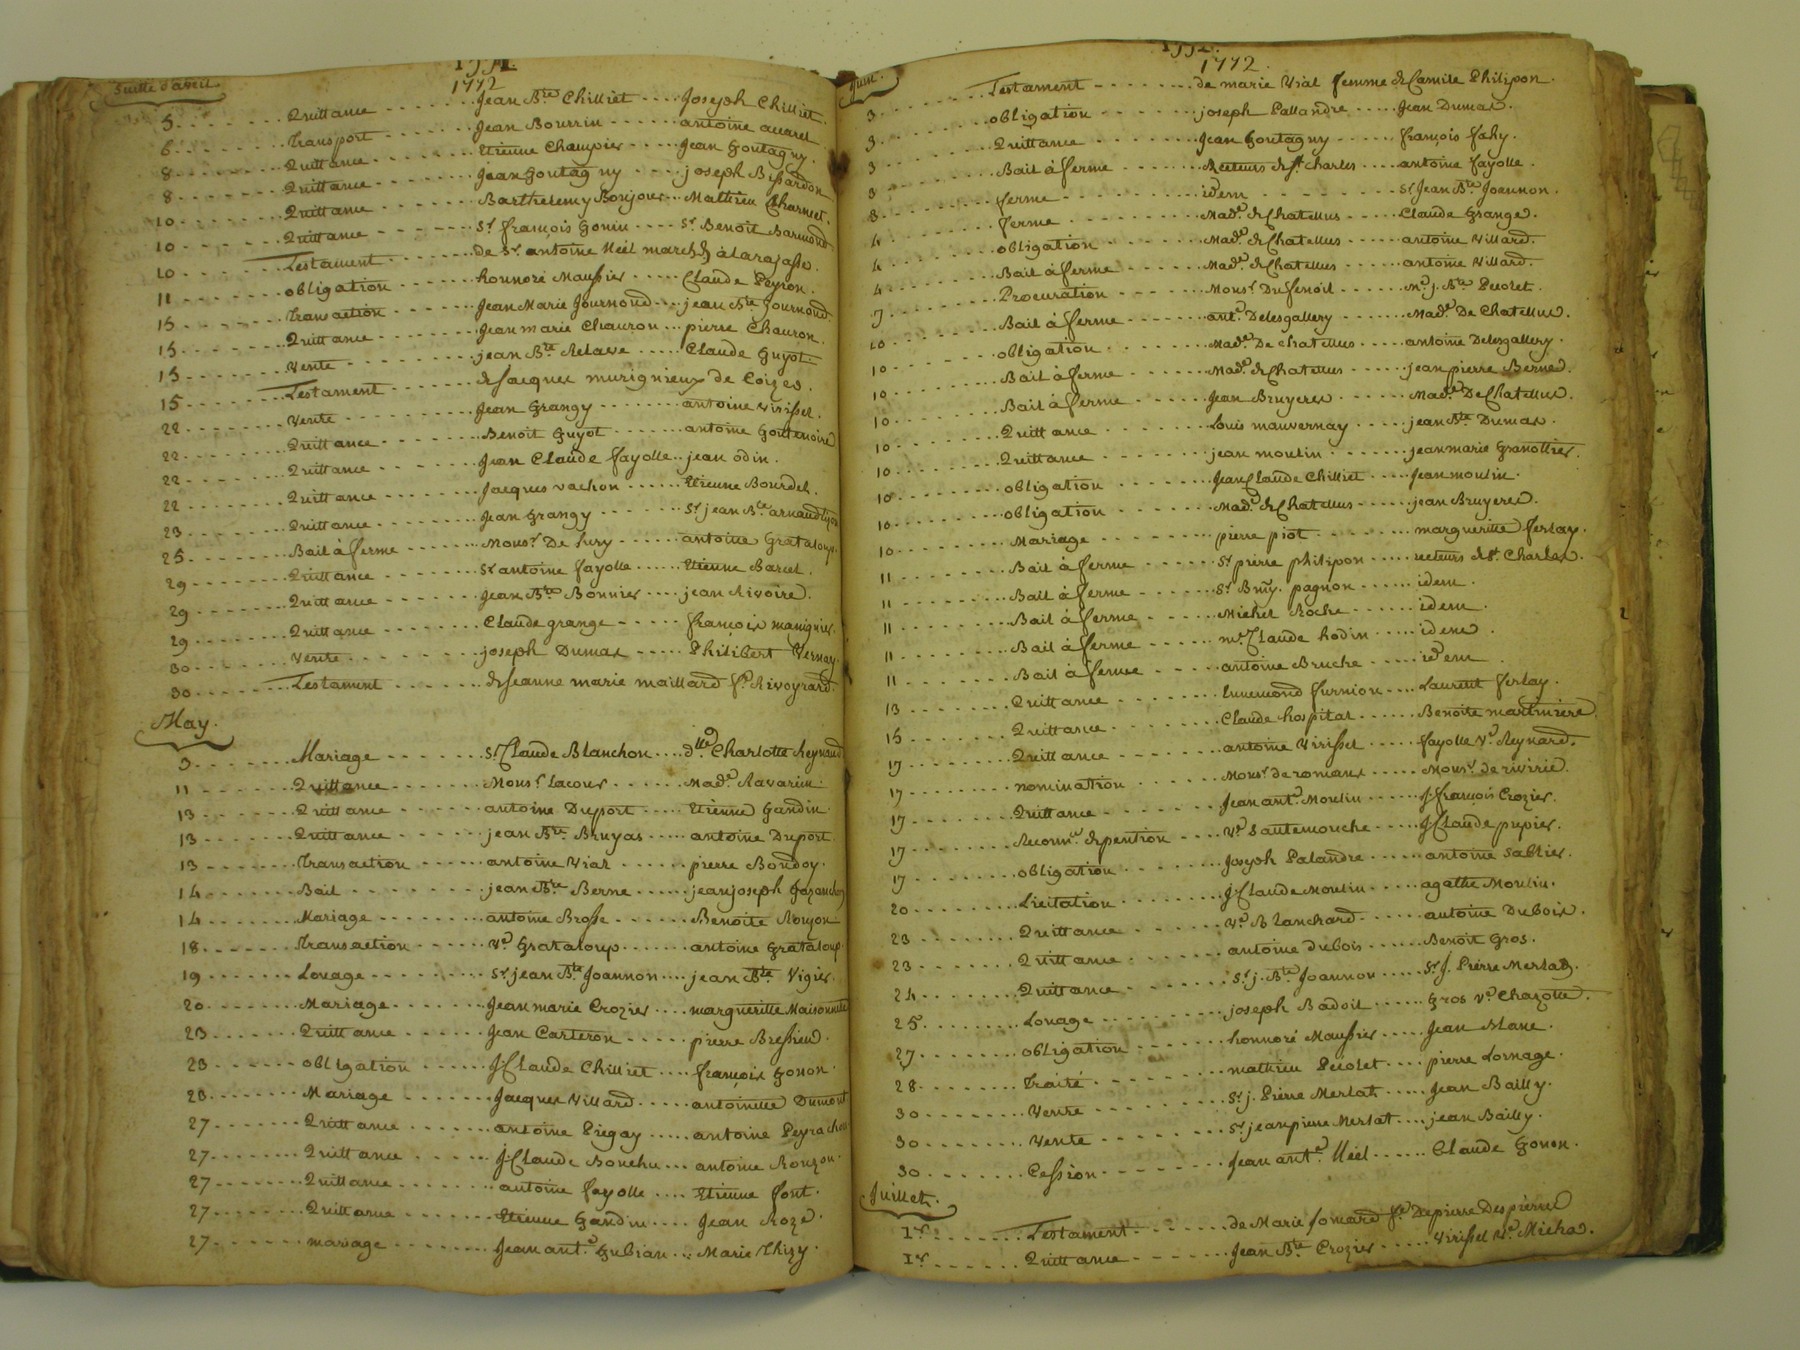 Suitte d'avril
1772
5 Quittance Jean Bte Chilliet Joseph Chilliet.
6 Transport Jean Bourrin antoine
8 Quittance Etienne Champier Jean Goutagny.
8 Quittance Jean Goutagny joseph Bissardon
10 Quittance Barthelemy Bonjour Mathieu Charmet.
10 Quittance Sr françois Gonin Sr Benoit
10 Testament de Sr antoine Néel marchd à Larajasse.
11 obligation honnoré Maussier Claude Peyron.
15 Transaction Jean Marie Journoud jean Bte Journoud.
15 Quittance Jean marie Chauron pierre Chauron.
15 Vente jean Bte Relave Claude Guyot.
15 Testament de Jacques murignieux de Coizes.
22 Vente Jean Grangy antoine virissel.
22 Quittance Benoit Guyot antoine Gouttenoire
22 Quittance Jean Claude fayolle jean odin.
22 Quittance Jacques vachon Etienne Bourdel.
23 Quittance Jean Grangy Sr jean Bte arnaud
25 Bail à ferme Monsr De Sury antoine Grataloup.
29 Quittance Sr antoine fayolle Etienne Barcel.
29 Quittance Jean Bte Bonnier jean Rivoire.
29 Quittance Claude grange françois
30 Vente joseph Dumas Philibert Vernay.
30 Testament de Jeanne marie maillard fe Rivoyrard.
May.
3 Mariage Sr Claude Blanchon dlle Charlotte Reynaud
11 Quittance Monsr Lacour Made Ravarin.
13 Quittance antoine Duport Etienne Gandin.
13 Quittance jean Bte Bruyas antoine Duport.
13 Transaction antoine Vial pierre Bondoy.
14 Bail jean Bte Berne jean joseph
14 Mariage antoine Brosse Benoite Ronzon
18 Transaction Ve Grataloup antoine Grataloup.
19 Louage Sr jean Bte Joannon jean Bte Vigier.
20 Mariage Jean marie Crozier margueritte Maisonneuve
23 Quittance Jean Carteron pierre Bressieu.
23 obligation J. Claude Chilliet françois Gonon.
23 Mariage Jacques Villard antoinette Dumont
27 Quittance antoine Piegay antoine Peyrachon
27 Quittance J. Claude Bonehu antoine Ronzon.
27 Quittance antoine fayolle Etienne font.
27 Quittance Etienne Gandin Jean Roze.
27 mariage Jean ante Gubian Marie Thizy.
Juin.
1772.
3 Testament de marie Vial femme de Camile Philipon.
3 obligation joseph Pallandre Jean Dumas.
3 Quittance Jean Goutagny françois fahy.
3 Bail à ferme Recteurs de St Charles antoine fayolle.
3 ferme idem Sr Jean Bte Joannon.
4 ferme Made de Chatellus Claude Grange.
4 obligation Made de Chatellus antoine Villard.
4 Bail à ferme Made de Chatellus antoine Villard.
7 Procuration Monsr Dufenoil Me J. Bte Pecolet.
10 Bail à ferme ante Delesgallery Made De Chatellus.
10 obligation Made De Chatellus antoine Delesgallery.
10 Bail à ferme Made de Chatellus jean pierre Berne.
10 Bail à ferme Jean Bruyere Made De Chatellus.
10 Quittance Louis mauvernay jean Bte Dumas.
10 Quittance jean moulin jean marie Granottier.
10 obligation Jean Claude Chilliet Jean moulin.
10 obligation Made de Chatellus jean Bruyere.
10 Mariage pierre piot margueritte ferlay.
11 Bail à ferme Sr pierre philipon recteurs de St Charles.
11 Bail à ferme Sr Bmy. pagnon idem.
11 Bail à ferme Michel Roche idem.
11 Bail à ferme me Claude hodin idem.
11 Bail à ferme antoine Bruche idem.
13 Quittance Ennemond furnion Laurent ferlay.
15 Quittance Claude hospital Benoite martiniere.
17 Quittance antoine Virissel fayolle Ve Reynard.
17 nomination Monsr de romans Monsr de rivirie.
17 Quittance Jean ante Moulin J. françois Crozier.
17 Reconn.ce de pention Ve Santemouche J. Claude pupier.
17 obligation Joseph Palandre antoine Sablier.
20 Licitation J. Claude Moulin agathe Moulin.
23 Quittance Ve Blanchard antoine Dubois.
23 Quittance antoine dubois Benoit Gros.
24 Quittance Sr j. Bte Joannon Sr J. Pierre Merlat.
25 Louage joseph Badoil Gros Ve Chazotte.
27 obligation honnoré Maussier Jean Blanc.
28 Traité mathieu Pecolet pierre Lornage.
30 Vente Sr j. Pierre Merlat Jean Bailly.
30 Vente Sr jean pierre Merlat jean Bailly.
30 Cession Jean ante Néel Claude Gonon.
Juillet.
1er Testament de Marie fomard fe De pierre Despierre
1er Quittance Jean Bte Crozier Virissel Ve Micha.